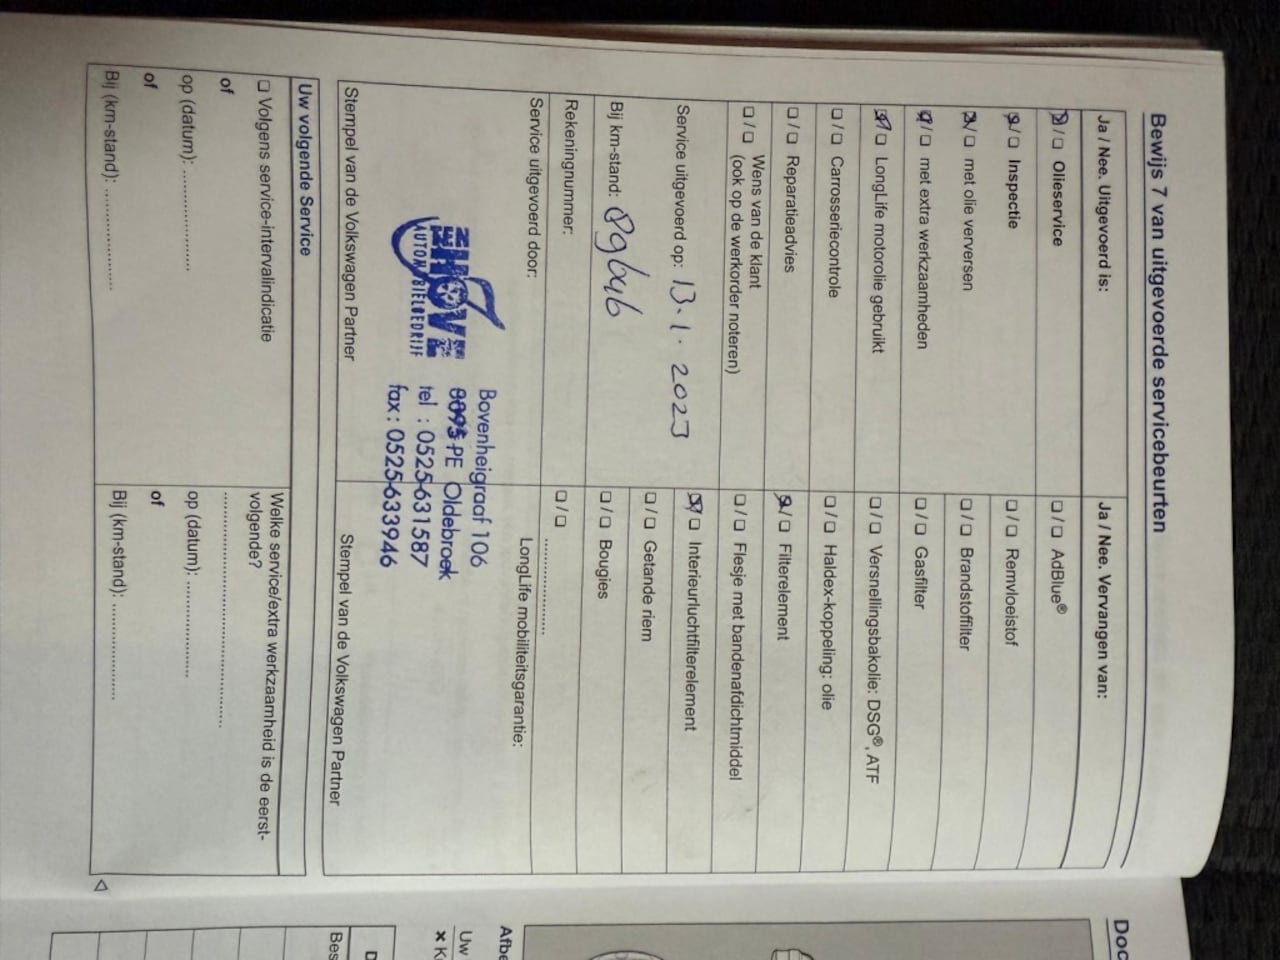 Bewijs 7 van uitgevoerde servicebeurten
Ja / Nee. Uitgevoerd is:
☒/☐ Olieservice
☒/☐ Inspectie
☒/☐ met olie verversen
☒/☐ met extra werkzaamheden
☒/☐ LongLife motorolie gebruikt
☐/☐ Carrosseriecontrole
☐/☐ Reparatieadvies
☐/☐ Wens van de klant
(ook op de werkorder noteren)
Service uitgevoerd op: 13.1.2023
Bij km-stand:
Rekeningnummer:
Service uitgevoerd door:
AUTOMOBIELBEDRIJF
Bovenheigraaf 106
8095 PE Oldebroek
tel : 0525-631587
fax: 0525-633946
Stempel van de Volkswagen Partner
Ja / Nee. Vervangen van:
☐/☐ AdBlue®
☐/☐ Remvloeistof
☐/☐ Brandstoffilter
☐/☐ Gasfilter
☐/☐ Versnellingsbakolie: DSG®, ATF
☐/☐ Haldex-koppeling: olie
☒/☐ Filterelement
☐/☐ Flesje met bandenafdichtmiddel
☒/☐ Interieurluchtfilterelement
☐/☐ Getande riem
☐/☐ Bougies
☐/☐ ....................
LongLife mobiliteitsgarantie:
Stempel van de Volkswagen Partner
Uw volgende Service
☐ Volgens service-intervalindicatie
of
op (datum): ....................
of
Bij (km-stand): ....................
Welke service/extra werkzaamheid is de eerst-
volgende?
..............................................
op (datum): ....................
of
Bij (km-stand): ....................
Doc
Afbe
Uw
Bes